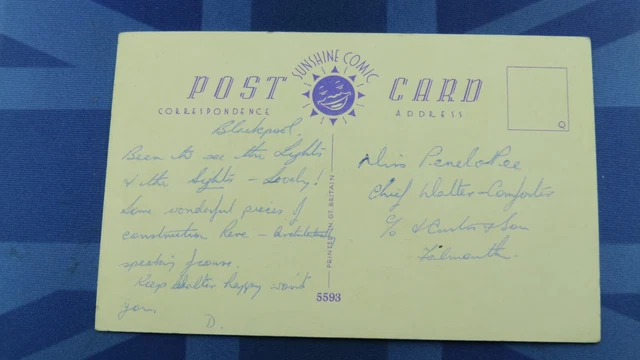 POST CARD
SUNSHINE COMIC
CORRESPONDENCE
ADDRESS
Blackpool.
Been to see the Lights
& the Sights - Lovely!
Some wonderful pieces of
construction here - architecturally
speaking of course.
Keep Walter happy won't
you.
D.
PRINTED IN GT. BRITAIN
5593
Miss Penelopee
Chief Walter-Comforter
c/o & Son
Falmouth.
Q